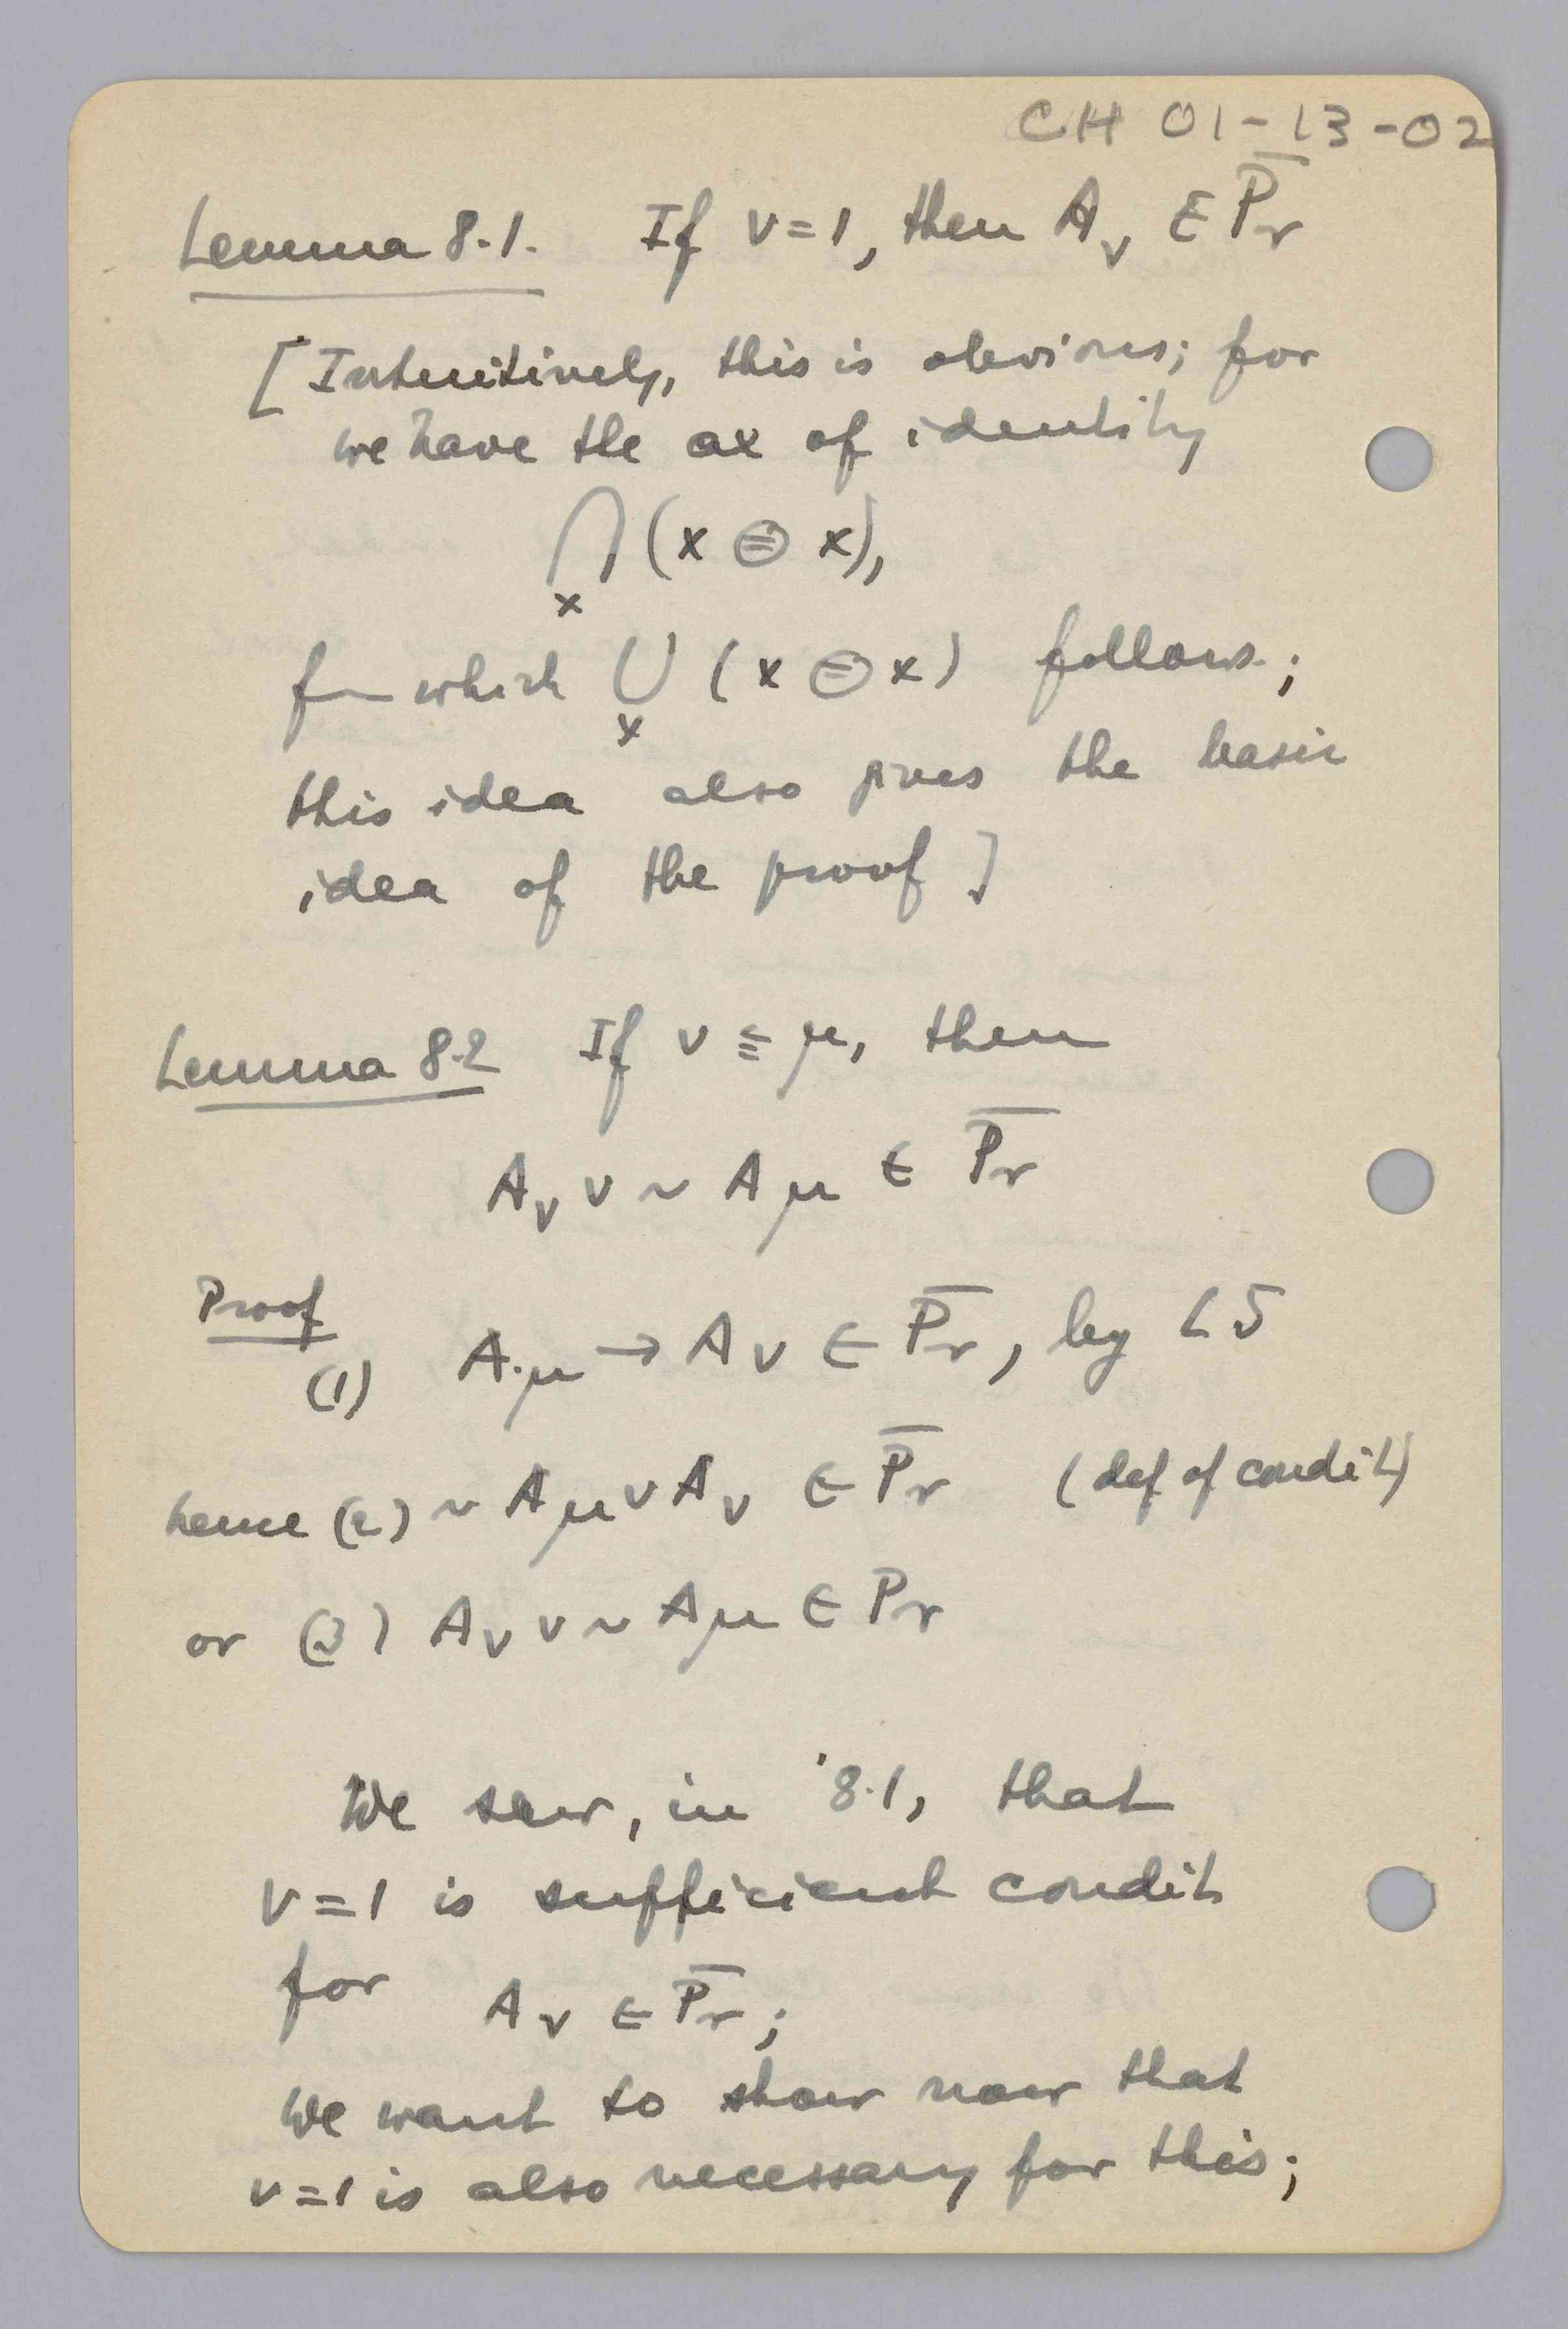 CH 01-13-02
Lemma 8.1. If ν=1, then A_ν ∈ P̅r̅
[Intuitively, this is obvious; for
we have the ax of identity
⋂ₓ (x ⊜ x),
fr which ⋃ₓ (x ⊜ x) follows;
this idea also gives the basic
idea of the proof]
Lemma 8.2 If ν ≦ μ, then
A_ν ∨ ~ A_μ ∈ P̅r̅
Proof
(1) A_μ → A_ν ∈ P̅r̅, by L5
hence (2) ~ A_μ ∨ A_ν ∈ P̅r̅ (def of condit)
or (3) A_ν ∨ ~ A_μ ∈ Pr
We saw, in 8.1, that
ν=1 is sufficient condit
for A_ν ∈ P̅r̅;
We want to show now that
ν=1 is also necessary for this;